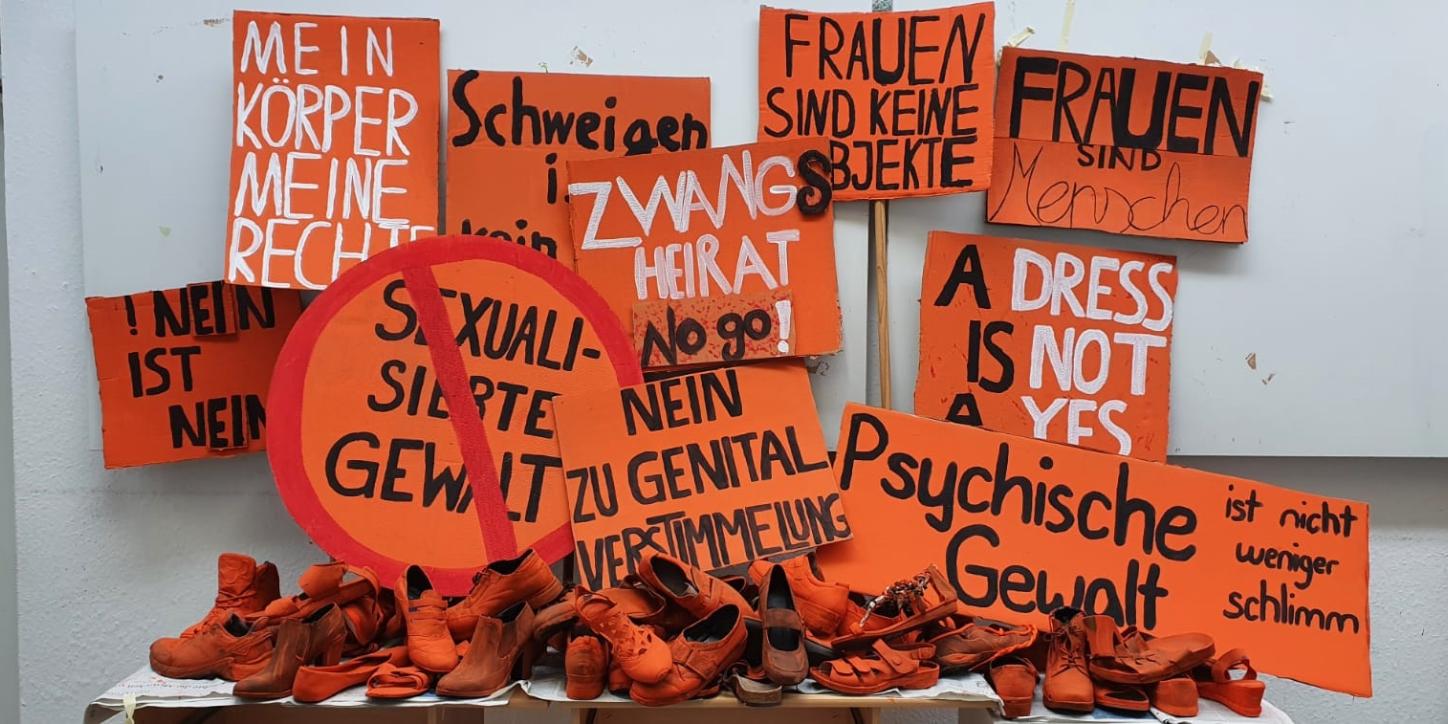 MEIN
KÖRPER
MEINE
RECHTE
Schweigen
kein
FRAUEN
SIND KEINE
OBJEKTE
FRAUEN
SIND
Menschen
ZWANGS
HEIRAT
No go!
! NEIN
IST
NEIN
SEXUALI-
SIERTE
GEWALT
NEIN
ZU GENITAL
VERSTIMMELUNG
A DRESS
IS NOT
A YES
Psychische
Gewalt
ist nicht
weniger
schlimm